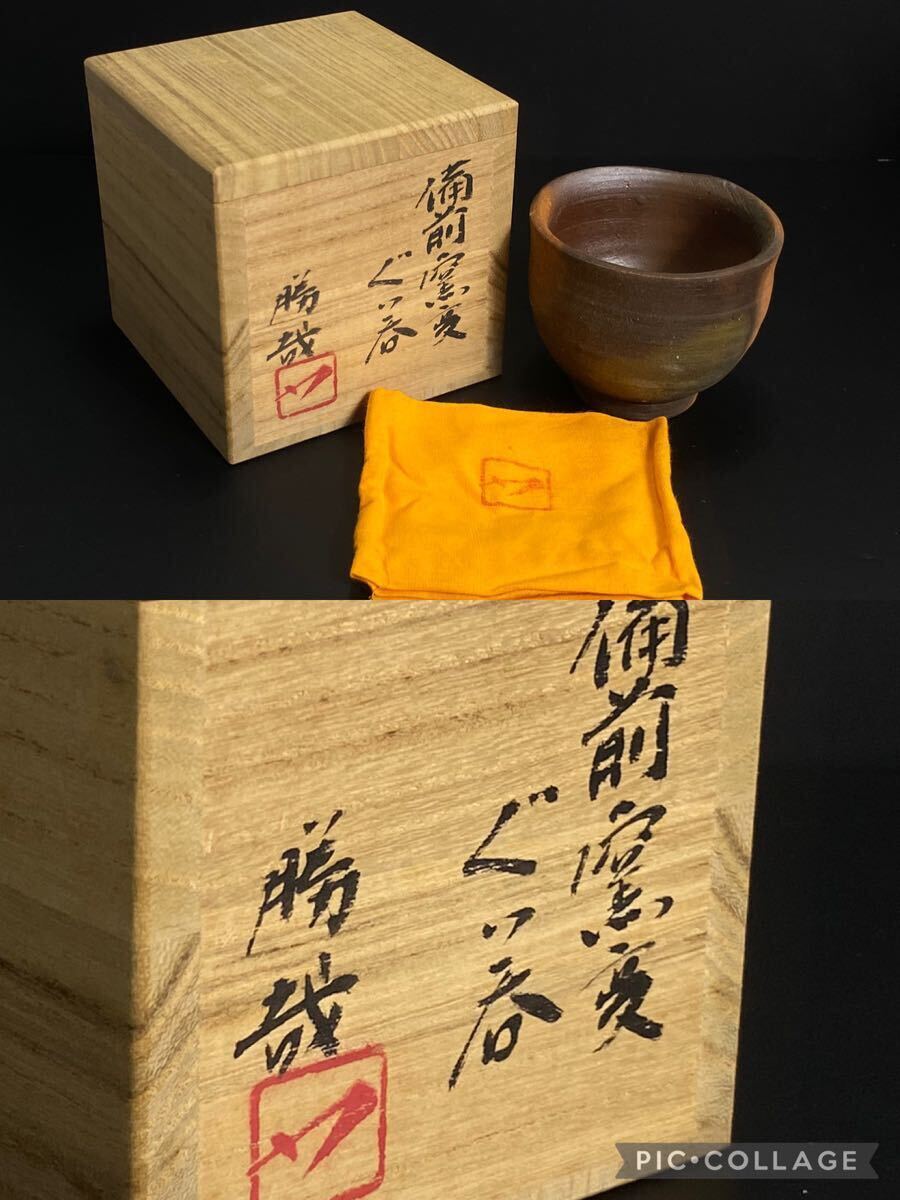 備前窯変
ぐい呑
勝哉
備前窯変
ぐい呑
勝哉
PIC•COLLAGE